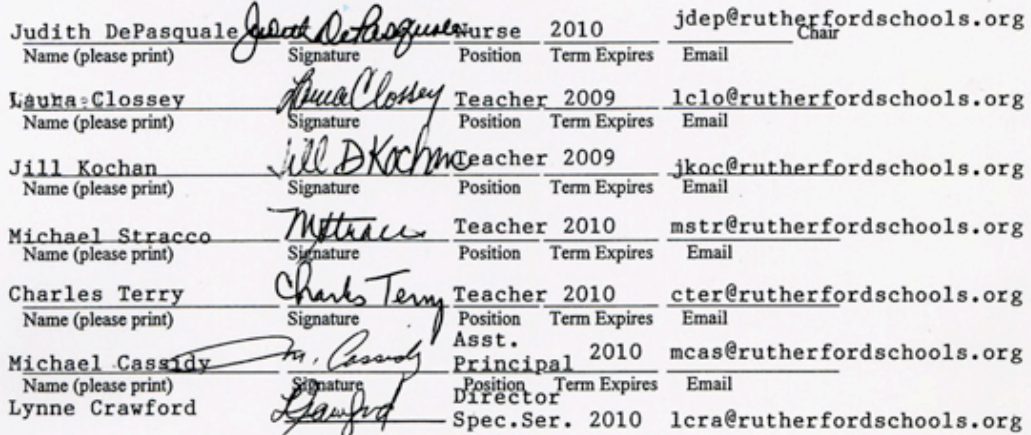 Judith DePasquale Judith DePasquale Nurse 2010 jdep@rutherfordschools.org
Name (please print) Signature Position Term Expires Email Chair
Laura Clossey Laura Clossey Teacher 2009 lclo@rutherfordschools.org
Name (please print) Signature Position Term Expires Email
Jill Kochan Jill D Kochan Teacher 2009 jkoc@rutherfordschools.org
Name (please print) Signature Position Term Expires Email
Michael Stracco Teacher 2010 mstr@rutherfordschools.org
Name (please print) Signature Position Term Expires Email
Charles Terry Charles Terry Teacher 2010 cter@rutherfordschools.org
Name (please print) Signature Position Term Expires Email
Asst.
Michael Cassidy M. Cassidy Principal 2010 mcas@rutherfordschools.org
Name (please print) Signature Position Term Expires Email
Director
Lynne Crawford LCrawford Spec.Ser. 2010 lcra@rutherfordschools.org